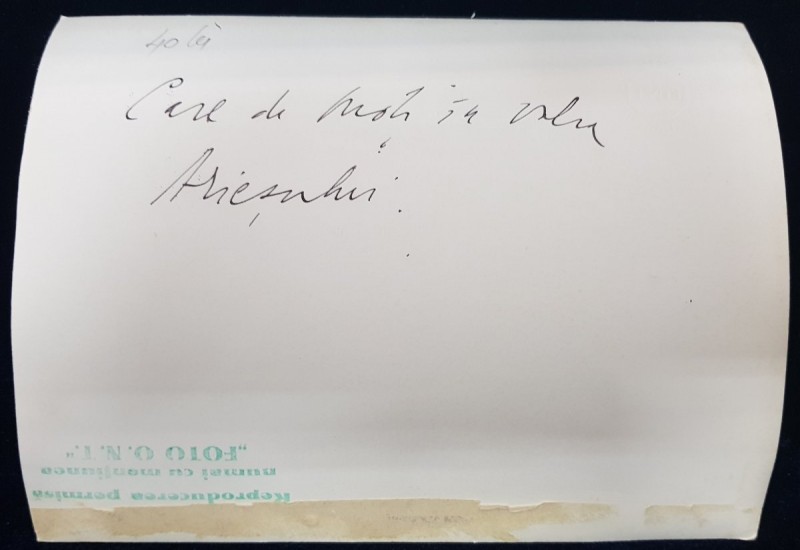 40 lei
Case de moți în valea
Arieșului.
Reproducerea permisă
numai cu mențiunea
„FOTO O.N.T."